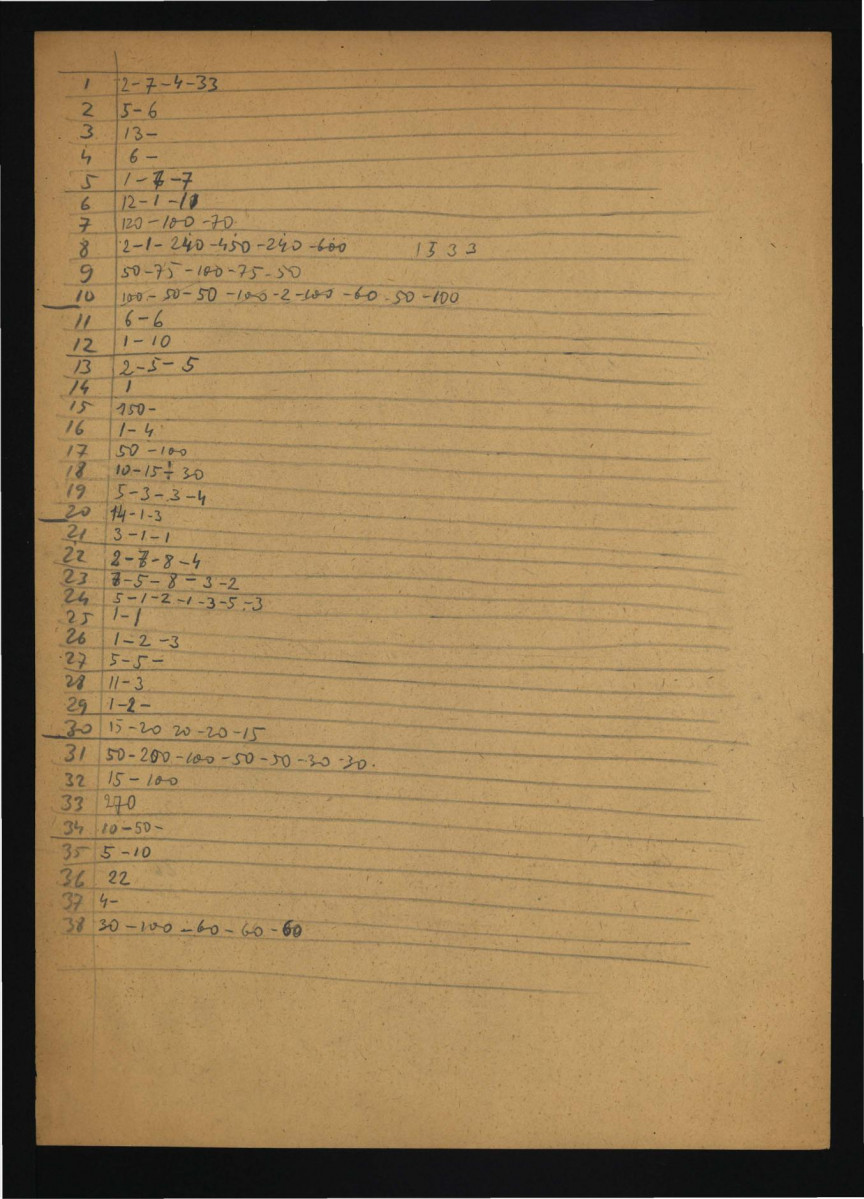 1 2-7-4-33
2 5-6
3 13-
4 6-
5 1-7-7
6 12-1-11
7 120-100-70
8 2-1-240-450-240-600 1533
9 50-75-100-75-50
10 100-50-50-100-2-100-60-50-100
11 6-6
12 1-10
13 2-5-5
14 1
15 150-
16 1-4
17 50-100
18 10-15-30
19 5-3-3-4
20 14-1-3
21 3-1-1
22 2-7-8-4
23 7-5-8-3-2
24 5-1-2-1-3-5-3
25 1-1
26 1-2-3
27 5-5-
28 11-3
29 1-2-
30 15-20 20-20-15
31 50-200-100-50-50-30-30.
32 15-100
33 270
34 10-50-
35 5-10
36 22
37 4-
38 30-100-60-60-60